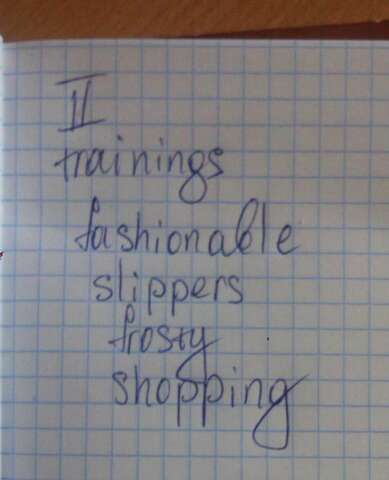 II
trainings
fashionable
slippers
frosty
shopping